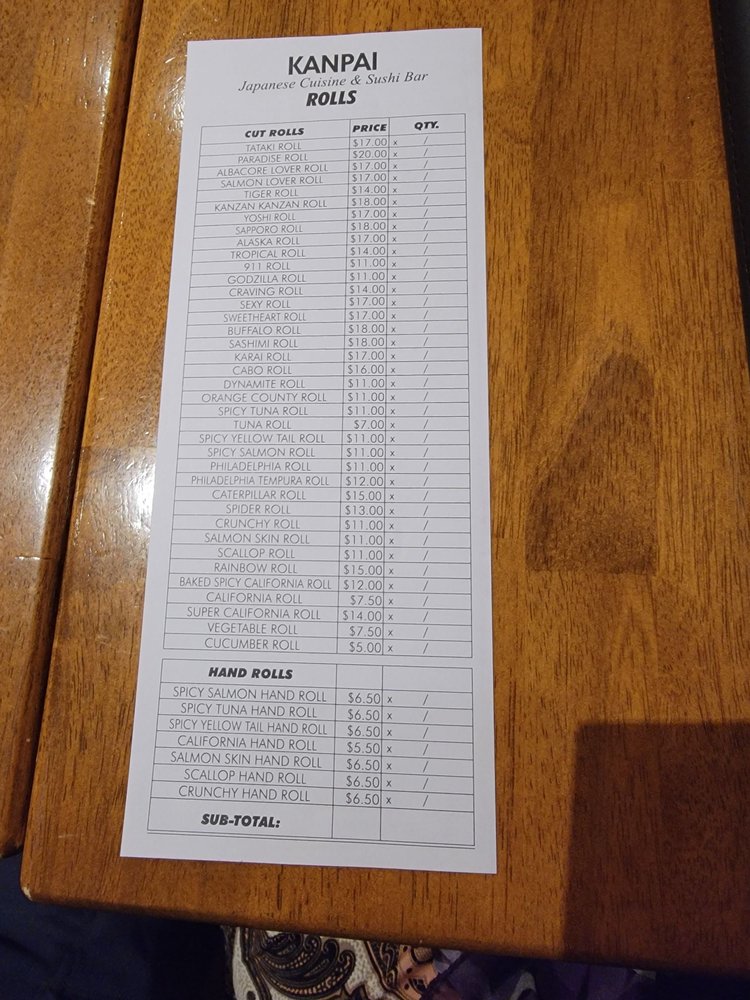 KANPAI
Japanese Cuisine & Sushi Bar
ROLLS
CUT ROLLS PRICE QTY.
TATAKI ROLL $17.00 x /
PARADISE ROLL $20.00 x /
ALBACORE LOVER ROLL $17.00 x /
SALMON LOVER ROLL $17.00 x /
TIGER ROLL $14.00 x /
KANZAN KANZAN ROLL $18.00 x /
YOSHI ROLL $17.00 x /
SAPPORO ROLL $18.00 x /
ALASKA ROLL $17.00 x /
TROPICAL ROLL $14.00 x /
911 ROLL $11.00 x /
GODZILLA ROLL $11.00 x /
CRAVING ROLL $14.00 x /
SEXY ROLL $17.00 x /
SWEETHEART ROLL $17.00 x /
BUFFALO ROLL $18.00 x /
SASHIMI ROLL $18.00 x /
KARAI ROLL $17.00 x /
CABO ROLL $16.00 x /
DYNAMITE ROLL $11.00 x /
ORANGE COUNTY ROLL $11.00 x /
SPICY TUNA ROLL $11.00 x /
TUNA ROLL $7.00 x /
SPICY YELLOW TAIL ROLL $11.00 x /
SPICY SALMON ROLL $11.00 x /
PHILADELPHIA ROLL $11.00 x /
PHILADELPHIA TEMPURA ROLL $12.00 x /
CATERPILLAR ROLL $15.00 x /
SPIDER ROLL $13.00 x /
CRUNCHY ROLL $11.00 x /
SALMON SKIN ROLL $11.00 x /
SCALLOP ROLL $11.00 x /
RAINBOW ROLL $15.00 x /
BAKED SPICY CALIFORNIA ROLL $12.00 x /
CALIFORNIA ROLL $7.50 x /
SUPER CALIFORNIA ROLL $14.00 x /
VEGETABLE ROLL $7.50 x /
CUCUMBER ROLL $5.00 x /
HAND ROLLS
SPICY SALMON HAND ROLL $6.50 x /
SPICY TUNA HAND ROLL $6.50 x /
SPICY YELLOW TAIL HAND ROLL $6.50 x /
CALIFORNIA HAND ROLL $5.50 x /
SALMON SKIN HAND ROLL $6.50 x /
SCALLOP HAND ROLL $6.50 x /
CRUNCHY HAND ROLL $6.50 x /
SUB-TOTAL: